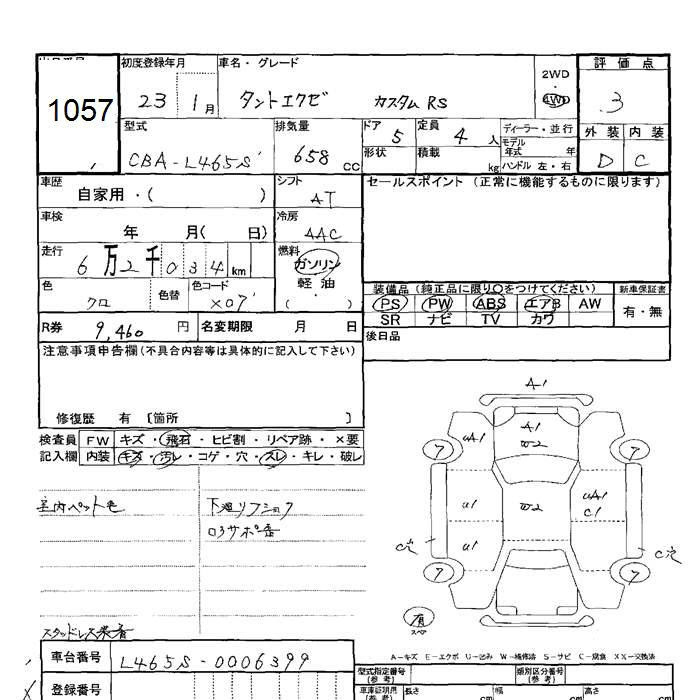 出品番号 初度登録年月 車名・グレード 評価点
1057 23 1月 タントエクゼ カスタムRS 2WD 4WD 3
型式 排気量 ドア 5 定員 4人 ディーラー・並行 外装 内装
CBA-L465S 658 cc 形状 積載 kg モデル年式 年 ハンドル 左・右 D C
車歴 シフト セールスポイント (正常に機能するものに限ります)
自家用・( ) AT
車検 冷房
年 月( 日) AAC
走行 燃料
6万2千034km ガソリン
色 色替 色コード 軽油・ 装備品(純正品に限り○をつけてください) 新車保証書
クロ X07 ( ) PS PW ABS エアB AW 有・無
SR ナビ TV カワ
R券 9,460円 名変期限 月 日 後日品
注意事項申告欄(不具合内容等は具体的に記入して下さい)
修復歴 有 〔箇所 〕
検査員 FW キズ・飛石・ヒビ割・リペア跡・×要
記入欄 内装 キズ・汚レ・コゲ・穴・スレ・キレ・破レ
A1
A1
W2
uA1
7 7
u1 W2 uA1
C1
u1
C穴 C穴
7 7
有
スペア
室内ペット毛 下廻リフショク
スタッドレス装着
A-キズ E-エクボ U-凹み W-補修波 S-サビ C-腐食 XX-交換済
車台番号 L465S-0006399 型式指定番号(参考) 類別区分番号(参考)
登録番号 車庫証明用(参考) 長さ cm 幅 cm 高さ cm